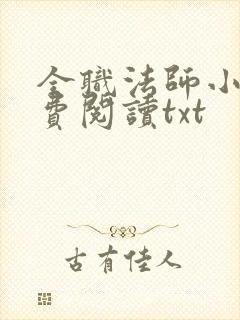 全職法師小
費閱讀txt
古有佳人